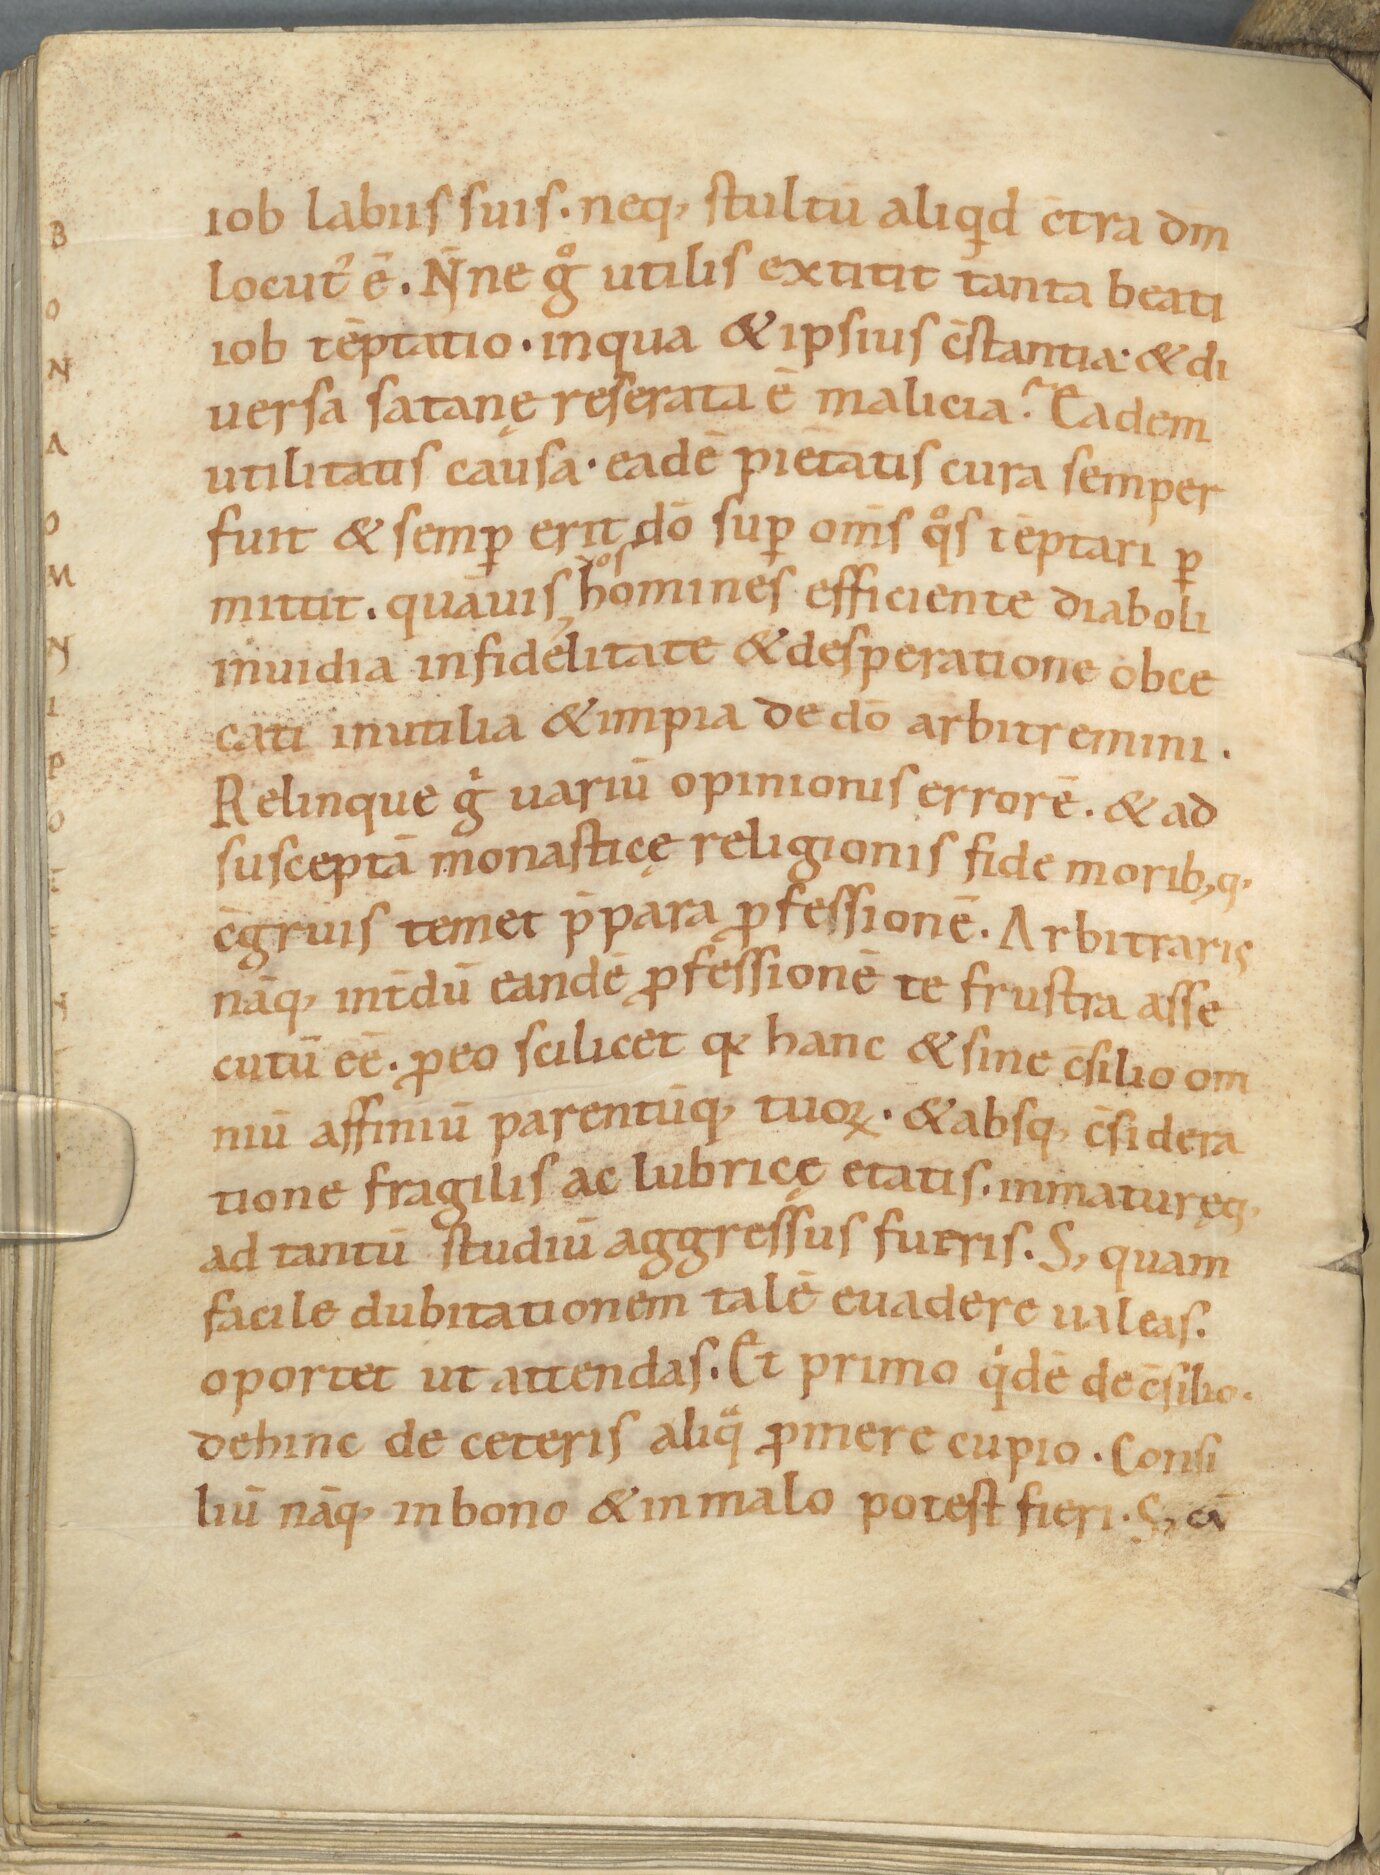 iob labiis suis. neq, stultū aliqd c̄tra dm̄
locut᾿ ē. N̄ne gͦ utilis extitit tanta beati
iob tēptatio. inqua & ipsius c̄stantia. & di
uersa satanę reserata ē malicia? Eadem
utilitatis causa. eadē pietatis cura semper
fuit & semꝑ erit dō suꝑ om̄s qͦs tēptari ꝑ
uos
mittit. quāuis, homines efficiente diaboli
inuidia infidelitate & desperatione obce
cati inutilia & impia de dō arbitremini.
Relinque gͥ uariū opinionis errorē. & ad
susceptā monasticę religionis fide morib,q,
c̄gruis temet p̄para ꝓfessionē. Arbitraris
nāq, int̄dū eandē ꝓfessionē te frustra asse
cutū eē. ꝓeo scilicet qͥ hanc & sine c̄silio om
niū affiniū parentūq, tuoꝝ. & absq, c̄sidera
tione fragilis ac lubricę etatis. inmaturęq,
ad tantū studiū aggressus fueris. S, quam
facile dubitationem talē euadere ualeas.
oportet ut attendas. Et primo qͥdē de c̄silio.
dehinc de ceteris aliqͣ ꝓmere cupio. Consi
liū nāq, in bono & in malo potest fieri. S, cū
B
O
N
A
O
M
N
I
P
O